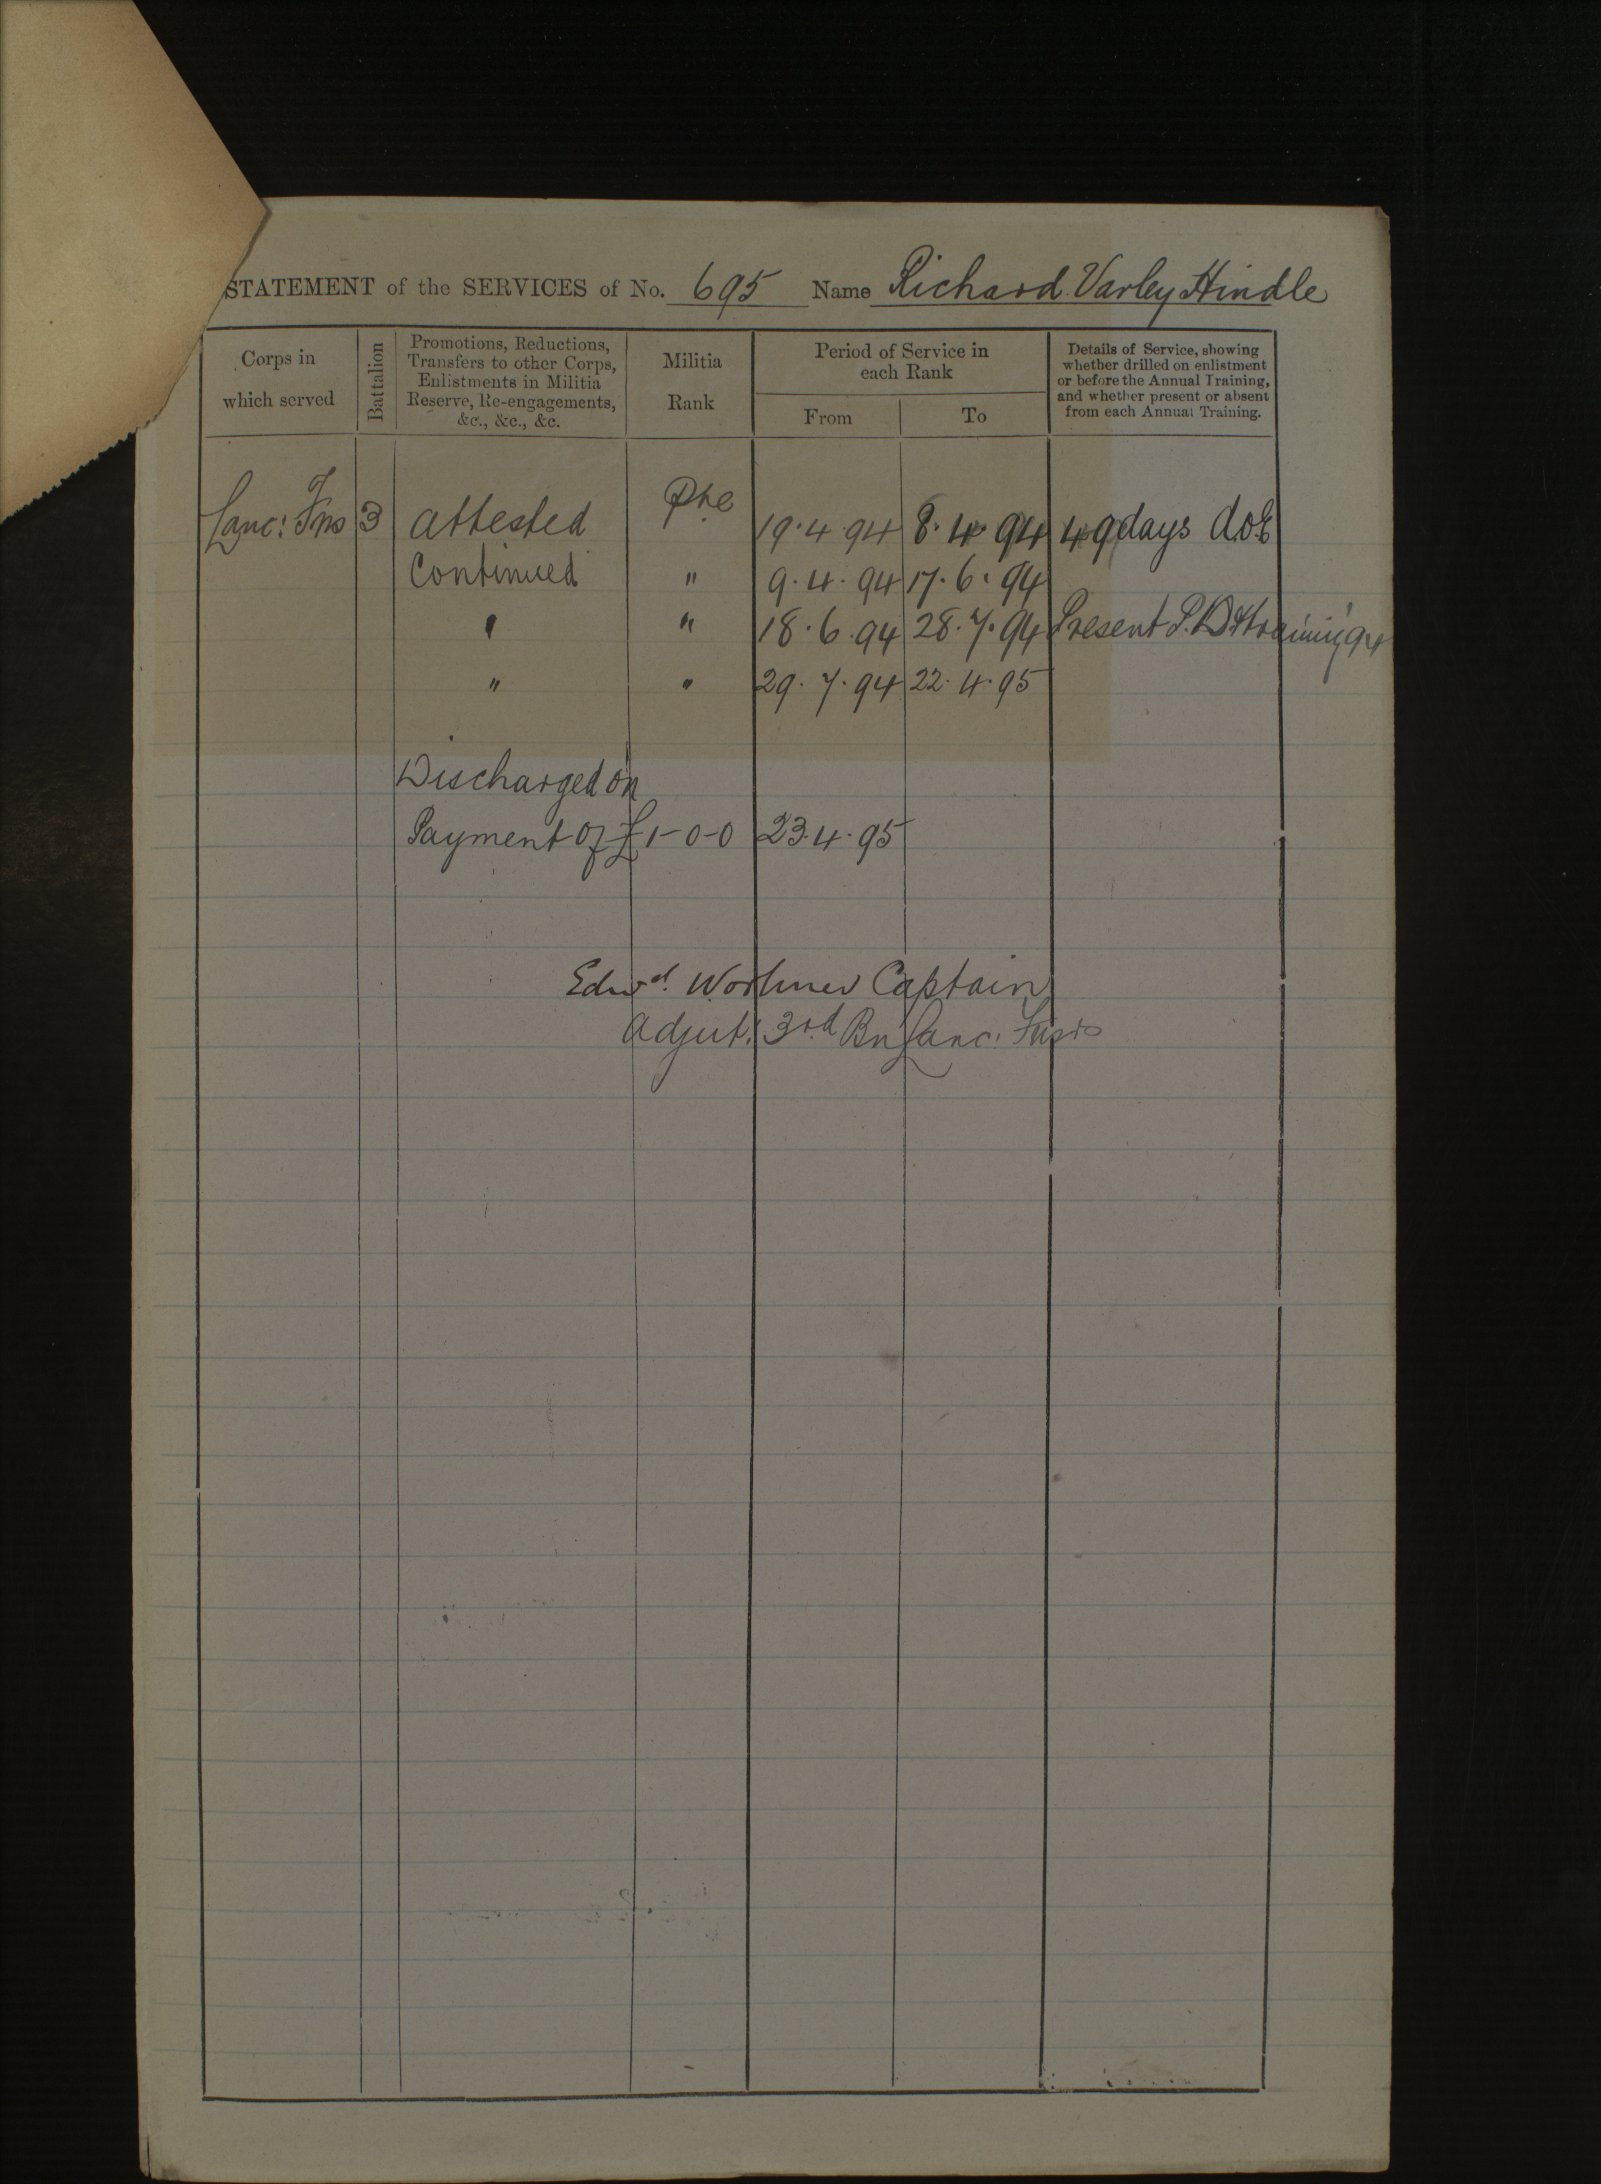 STATEMENT of the SERVICES of No. 695 Name Richard Varley Hindle
Corps in which served
Battalion
Promotions, Reductions, Transfers to other Corps, Enlistments in Militia Reserve, Re-engagements, &c., &c., &c.
Militia Rank
Period of Service in each Rank
From
To
Details of Service, showing whether drilled on enlistment or before the Annual Training, and whether present or absent from each Annual Training.
Lanc: Fus 3 Attested Pte 19.4.94 8.4.94 49 days d.o.E
Continued " 9.4.94 17.6.94
" " 18.6.94 28.7.94 Present P.D. & training 94
" " 29.7.94 22.4.95
Discharged on
Payment of £1-0-0 23.4.95
Edwd. Captain
Adjut. 3rd Bn Lanc: Fusrs